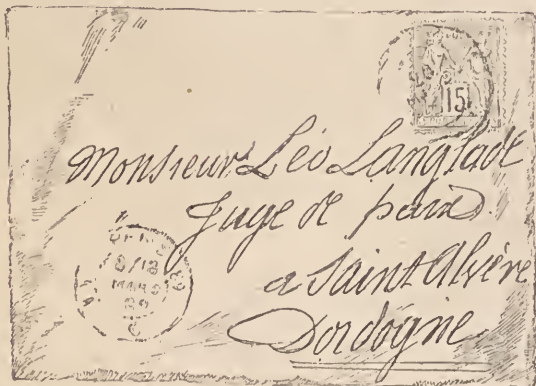 15
Monsieur Léo Langlade
Juge de paix
a Saint Alvère
Dordogne